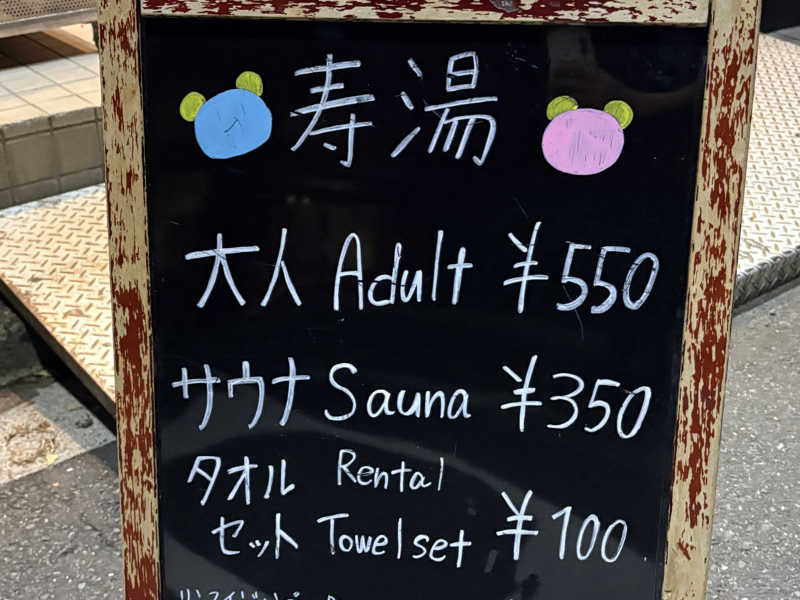 寿湯
大人 Adult ¥550
サウナ Sauna ¥350
タオル Rental
セット Towel set ¥100